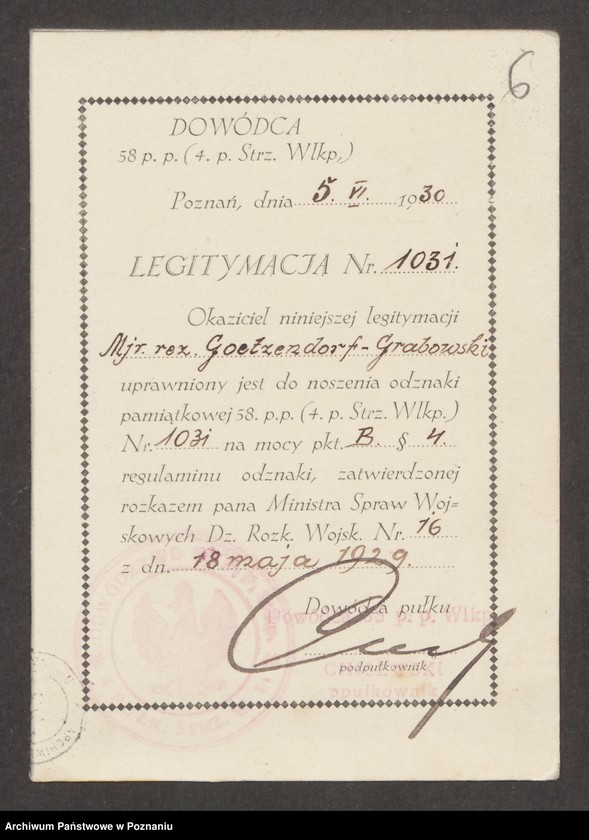 6
DOWÓDCA
58 p. p. (4. p. Strz. Wlkp,)
Poznań, dnia 5. VI. 1930
LEGITYMACJA Nr. 1031.
Okaziciel niniejszej legitymacji
Mjr. rez. Goetzendorf-Grabowski
uprawniony jest do noszenia odznaki
pamiątkowej 58. p.p. (4. p. Strz. Wlkp.)
Nr. 1031 na mocy pkt. B. § 4.
regulaminu odznaki, zatwierdzonej
rozkazem pana Ministra Spraw Woj=
skowych Dz. Rozk. Wojsk. Nr. 16
z dn. 18 maja 1929.
Dowódca pułku
Dowódca 58 p. p. Wlkp.
podpułkownik
ppułkownik
Archiwum Państwowe w Poznaniu